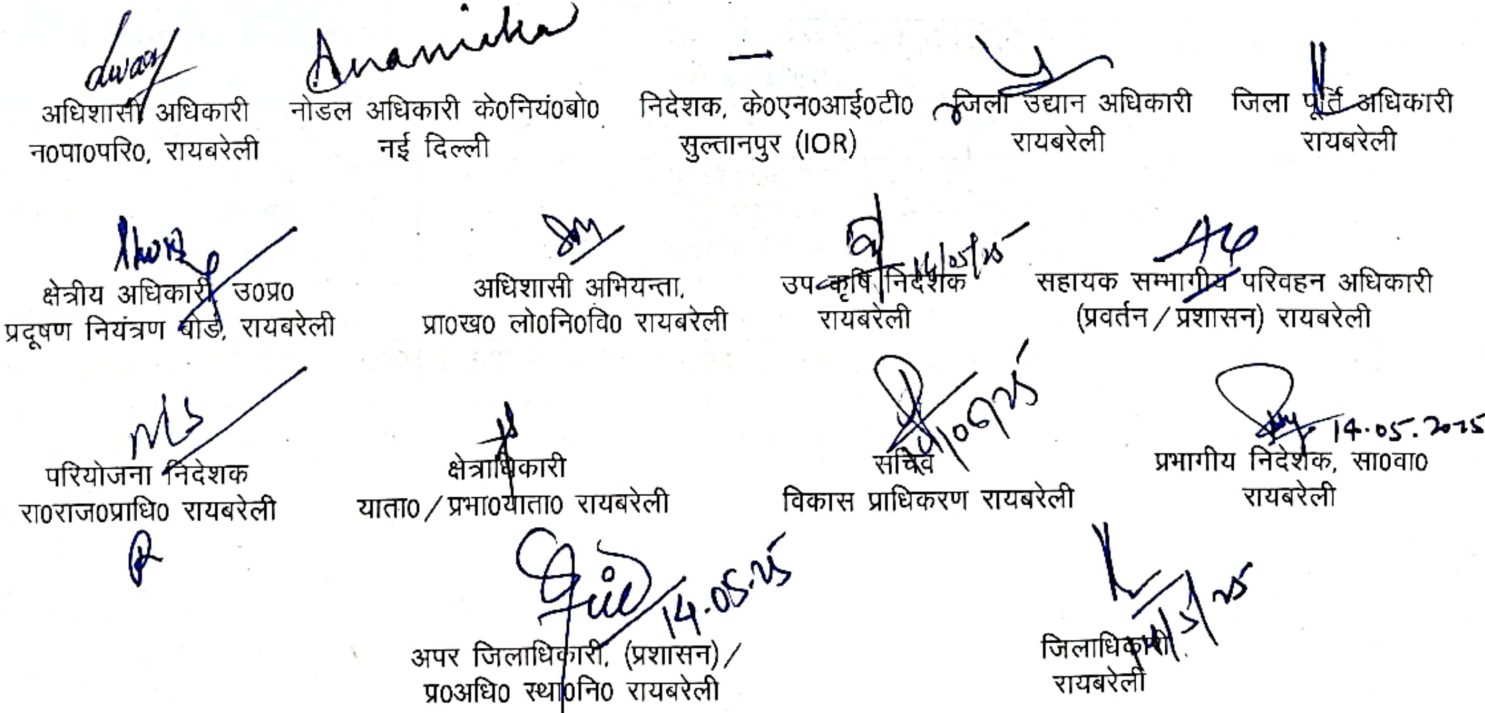 Anamika
अधिशासी अधिकारी
न०पा०परि०, रायबरेली
नोडल अधिकारी के०नियं०बो०
नई दिल्ली
—
निदेशक, के०एन०आई०टी०
सुल्तानपुर (IOR)
जिला उद्यान अधिकारी
रायबरेली
जिला पूर्ति अधिकारी
रायबरेली
क्षेत्रीय अधिकारी, उ०प्र०
प्रदूषण नियंत्रण बोर्ड, रायबरेली
अधिशासी अभियन्ता,
प्रा०ख० लो०नि०वि० रायबरेली
14/05/25
उप कृषि निदेशक
रायबरेली
सहायक सम्भागीय परिवहन अधिकारी
(प्रवर्तन/प्रशासन) रायबरेली
परियोजना निदेशक
रा०राज०प्राधि० रायबरेली
क्षेत्राधिकारी
याता०/प्रभा०याता० रायबरेली
सचिव
विकास प्राधिकरण रायबरेली
14.05.2025
प्रभागीय निदेशक, सा०वा०
रायबरेली
14.05.25
अपर जिलाधिकारी, (प्रशासन)/
प्र०अधि० स्था०नि० रायबरेली
14/5/25
जिलाधिकारी
रायबरेली